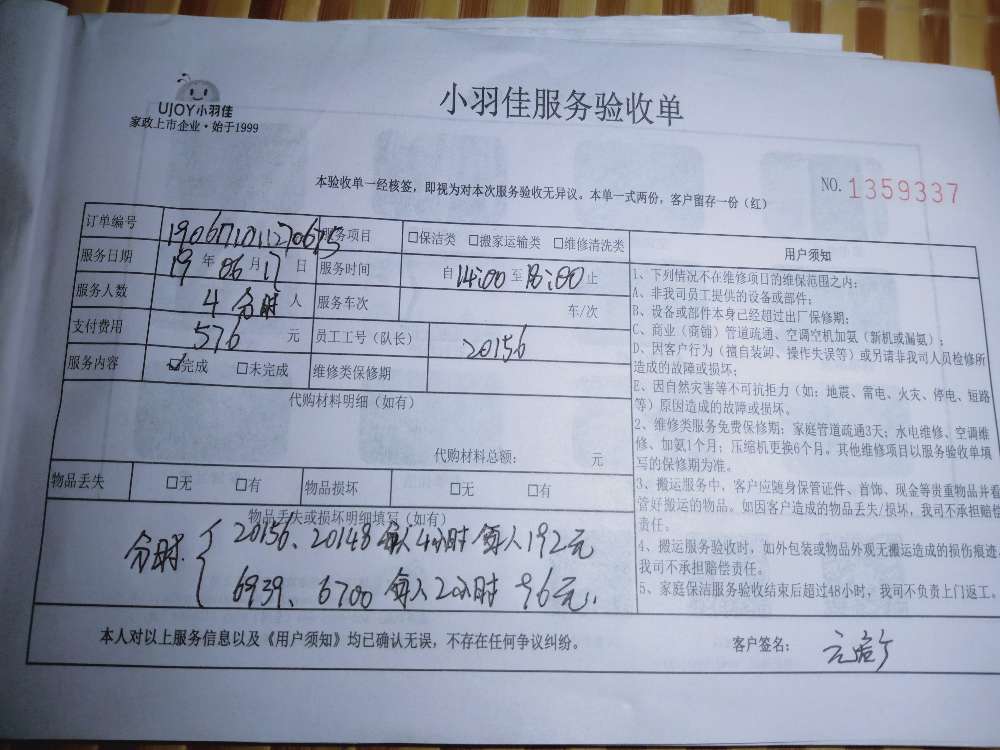 UJOY小羽佳
家政上市企业·始于1999
小羽佳服务验收单
本验收单一经核签，即视为对本次服务验收无异议。本单一式两份，客户留存一份（红）
NO.1359337
订单编号
服务项目 □保洁类 □搬家运输类 □维修清洗类
服务日期 19年06月17日 服务时间 自14:00至18:00止
服务人数 4 分时 人 服务车次 车/次
支付费用 576 元 员工工号（队长） 20156
服务内容 ☑完成 □未完成 维修类保修期
代购材料明细（如有）
代购材料总额： 元
物品丢失 □无 □有 物品损坏 □无 □有
物品丢失或损坏明细填写（如有）
分时
20156、20148 每人4小时 每人192元
6939、6700 每人2小时 96元.
用户须知
1、下列情况不在维修项目的维保范围之内：
A、非我司员工提供的设备或部件；
B、设备或部件本身已经超过出厂保修期；
C、商业（商铺）管道疏通、空调空机加氨（新机或漏氨）；
D、因客户行为（擅自装卸、操作失误等）或另请非我司人员检修所
造成的故障或损坏；
E、因自然灾害等不可抗拒力（如：地震、雷电、火灾、停电、短路
等）原因造成的故障或损坏。
2、维修类服务免费保修期：家庭管道疏通3天；水电维修、空调维
修、加氨1个月；压缩机更换6个月。其他维修项目以服务验收单填
写的保修期为准。
3、搬运服务中，客户应随身保管证件、首饰、现金等贵重物品并看
管好搬运的物品。如因客户造成的物品丢失/损坏，我司不承担赔偿
责任。
4、搬运服务验收时，如外包装或物品外观无搬运造成的损伤痕迹，
我司不承担赔偿责任。
5、家庭保洁服务验收结束后超过48小时，我司不负责上门返工。
本人对以上服务信息以及《用户须知》均已确认无误，不存在任何争议纠纷。
客户签名：